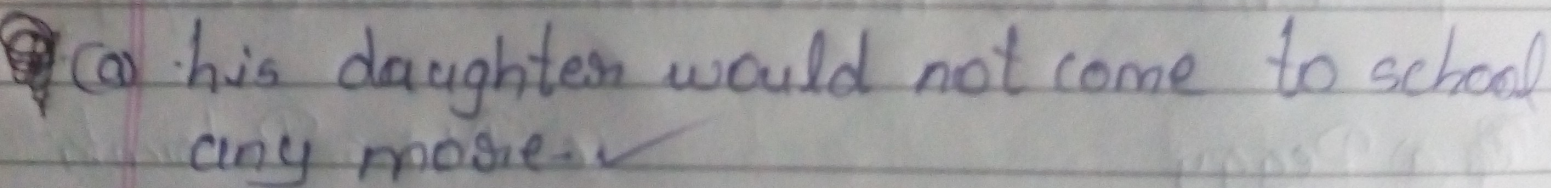 (a) his daughter would not come to school
any more.